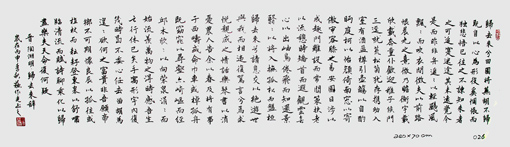 歸去來兮田園將蕪胡不歸
既自以心為形役奚惆悵而
獨悲悟已往之不諫知來者
之可追實迷途其未遠覺今
是而昨非舟遙遙以輕颺風
飄飄而吹衣問征夫以前路
恨晨光之熹微乃瞻衡宇載
欣載奔僮僕歡迎稚子候門
三徑就荒松菊猶存攜幼入
室有酒盈樽引壺觴以自酌
眄庭柯以怡顏倚南窗以寄
傲審容膝之易安園日涉以
成趣門雖設而常關策扶老
以流憩時矯首而遐觀雲無
心以出岫鳥倦飛而知還景
翳翳以將入撫孤松而盤桓
歸去來兮請息交以絕遊世
與我而相違復駕言兮焉求
悅親戚之情話樂琴書以消
憂農人告余以春及將有事
于西疇或命巾車或棹孤舟
既窈窕以尋壑亦崎嶇而經
丘木欣欣以向榮泉涓涓而
始流善萬物之得時感吾生
之行休已矣乎寓形宇內復
幾時曷不委心任去留胡為
遑遑欲何之富貴非吾願帝
鄉不可期懷良辰以孤往或
植杖而耘耔登東皋以舒嘯
臨清流而賦詩聊乘化以歸
盡樂夫天命復奚疑
晉陶淵明歸去來辭
歲在丙申
200x70cm
026